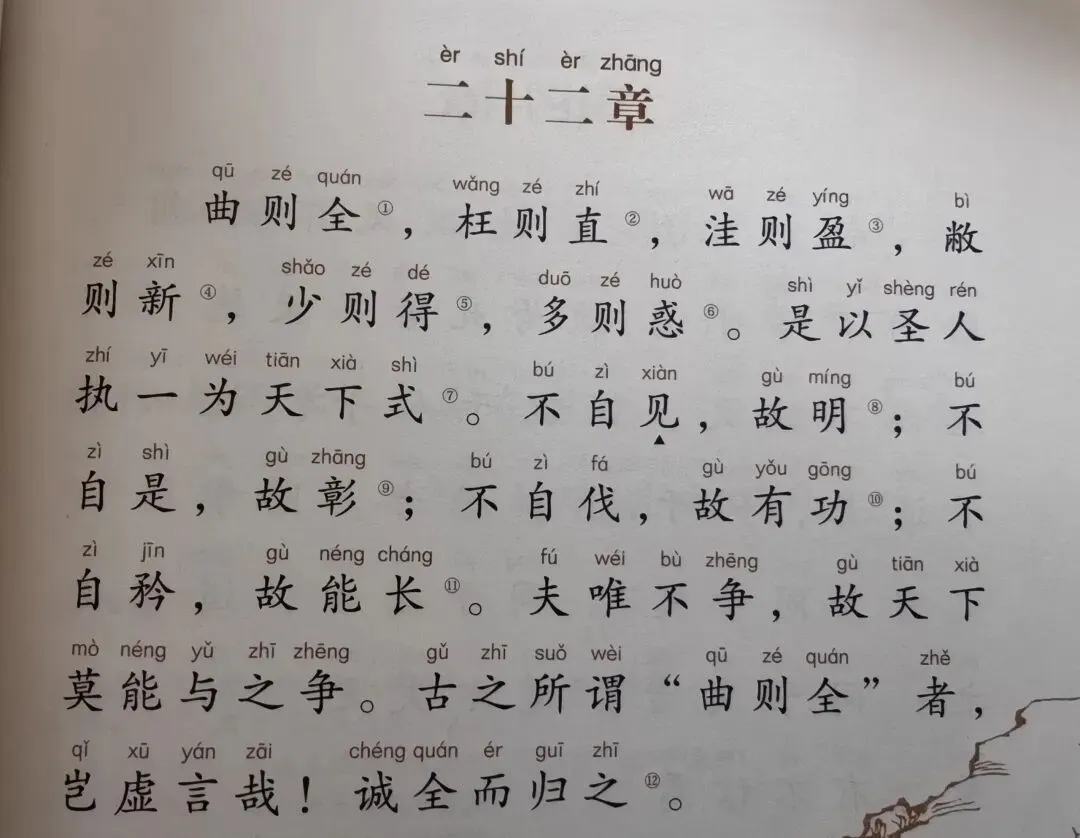 èr shí èr zhāng
二十二章
qū zé quán wǎng zé zhí wā zé yíng bì
曲则全①，枉则直②，洼则盈③，敝
zé xīn shǎo zé dé duō zé huò shì yǐ shèng rén
则新④，少则得⑤，多则惑⑥。是以圣人
zhí yī wéi tiān xià shì bú zì xiàn gù míng bú
执一为天下式⑦。不自见，故明⑧；不
zì shì gù zhāng bú zì fá gù yǒu gōng bú
自是，故彰⑨；不自伐，故有功⑩；不
zì jīn gù néng cháng fú wéi bù zhēng gù tiān xià
自矜，故能长⑪。夫唯不争，故天下
mò néng yǔ zhī zhēng gǔ zhī suǒ wèi qū zé quán zhě
莫能与之争。古之所谓“曲则全”者，
qǐ xū yán zāi chéng quán ér guī zhī
岂虚言哉！诚全而归之⑫。